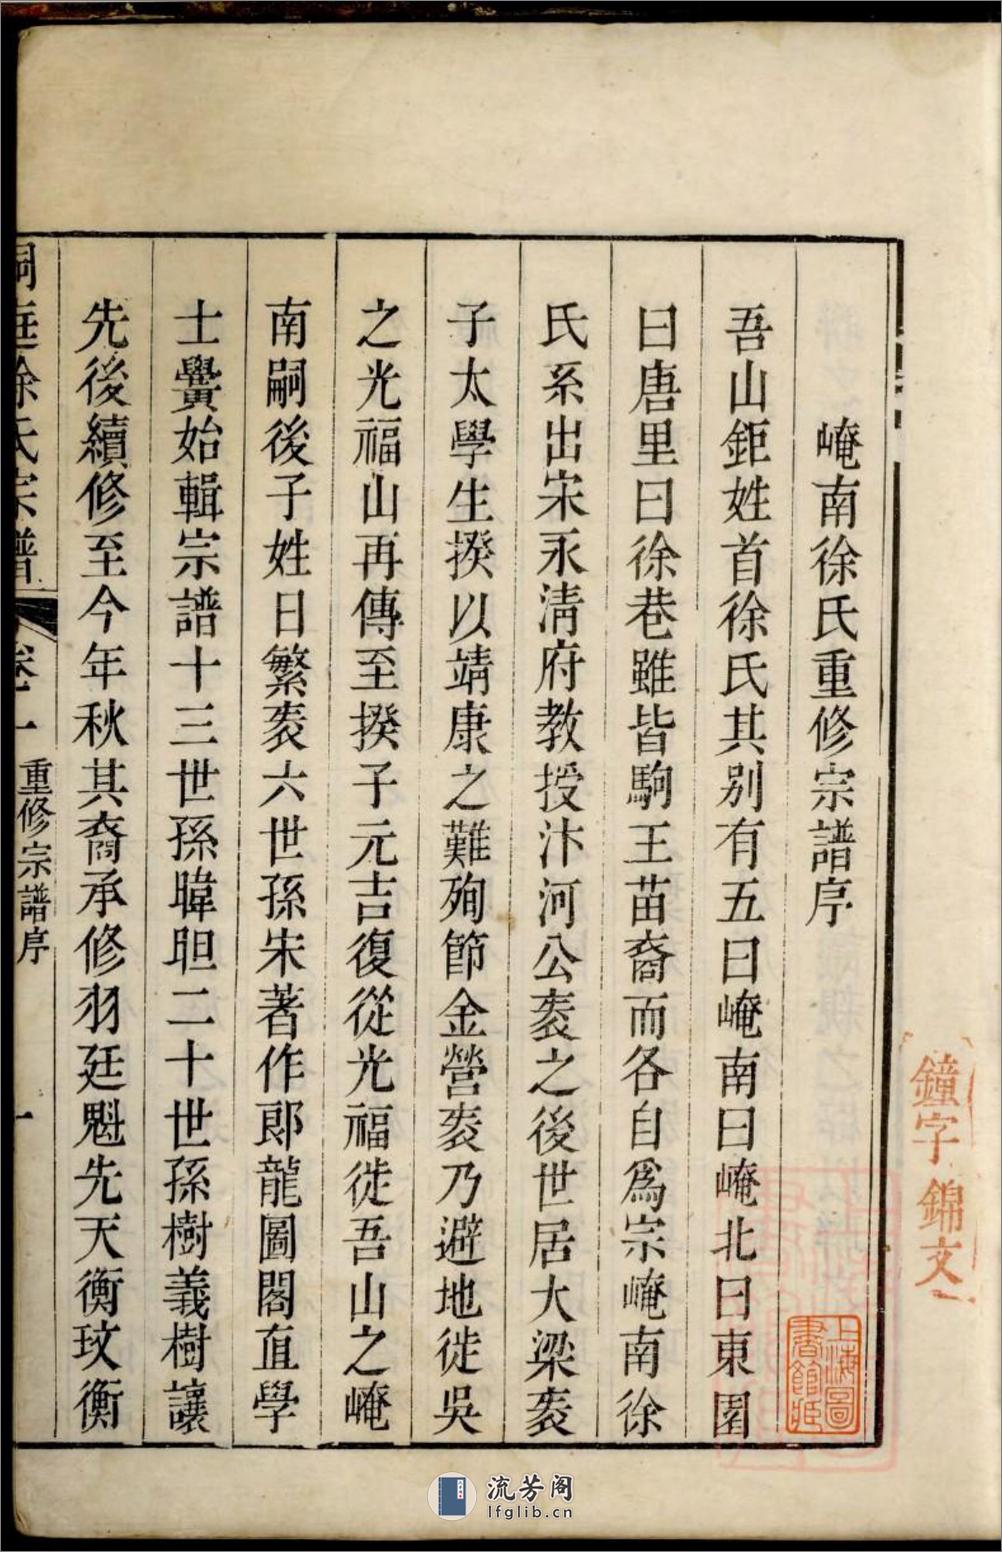 崦南徐氏重修宗譜序
吾山鉅姓首徐氏其别有五曰崦南曰崦北曰東園
曰唐里曰徐巷雖皆駒王苗裔而各自爲宗崦南徐
氏系出宋永清府教授汴河公袠之後世居大梁袠
子太學生揆以靖康之難殉節金營袠乃避地徙吳
之光福山再傳至揆子元吉復從光福徙吾山之崦
南嗣後子姓日繁袠六世孫朱著作郎龍圖閣直學
士黌始輯宗譜十三世孫暐䀿二十世孫樹義樹讓
先後續修至今年秋其裔承修羽廷魁先天衡玟衡
洞庭徐氏宗譜
卷一
重修宗譜序
一
鐘字
錦文
上海圖書館藏
流芳阁
lfglib.cn